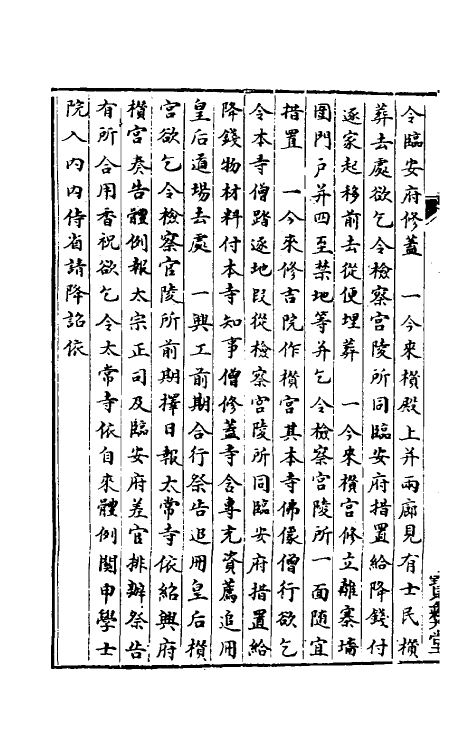 令臨安府修蓋　一今來欑殿上并兩廊見有士民欑
葬去處欲乞令檢察宮陵所同臨安府措置給降錢付
逐家起移前去從便埋葬　一今來欑宮修立籬寨墻
圍門戶并四至禁地等并乞令檢察宮陵所一面隨宜
措置　一今來修吉院作欑宮其本寺佛像僧行欲乞
令本寺僧踏逐地段從檢察宮陵所同臨安府措置給
降錢物材料付本寺知事僧修蓋寺舍專充資薦追冊
皇后道場去處　一興工前期合行祭告追冊皇后欑
宮欲乞令檢察官陵所前期擇日報太常寺依紹興府
欑宮奏告體例報太宗正司及臨安府差官排辦祭告
有所合用香祝欲乞令太常寺依自來體例關申學士
院入內內侍省請降詔依